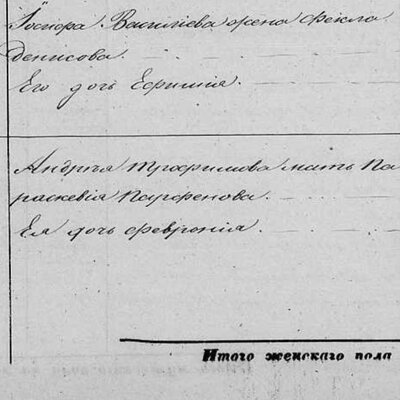 Ѳедора Васильева жена Ѳекла
Денисова.
Его дочь Ефимія.
Андрѣя Трофимова мать Па
раскевія Парфенова.
Ея дочь Февронія.
Итого женскаго пола